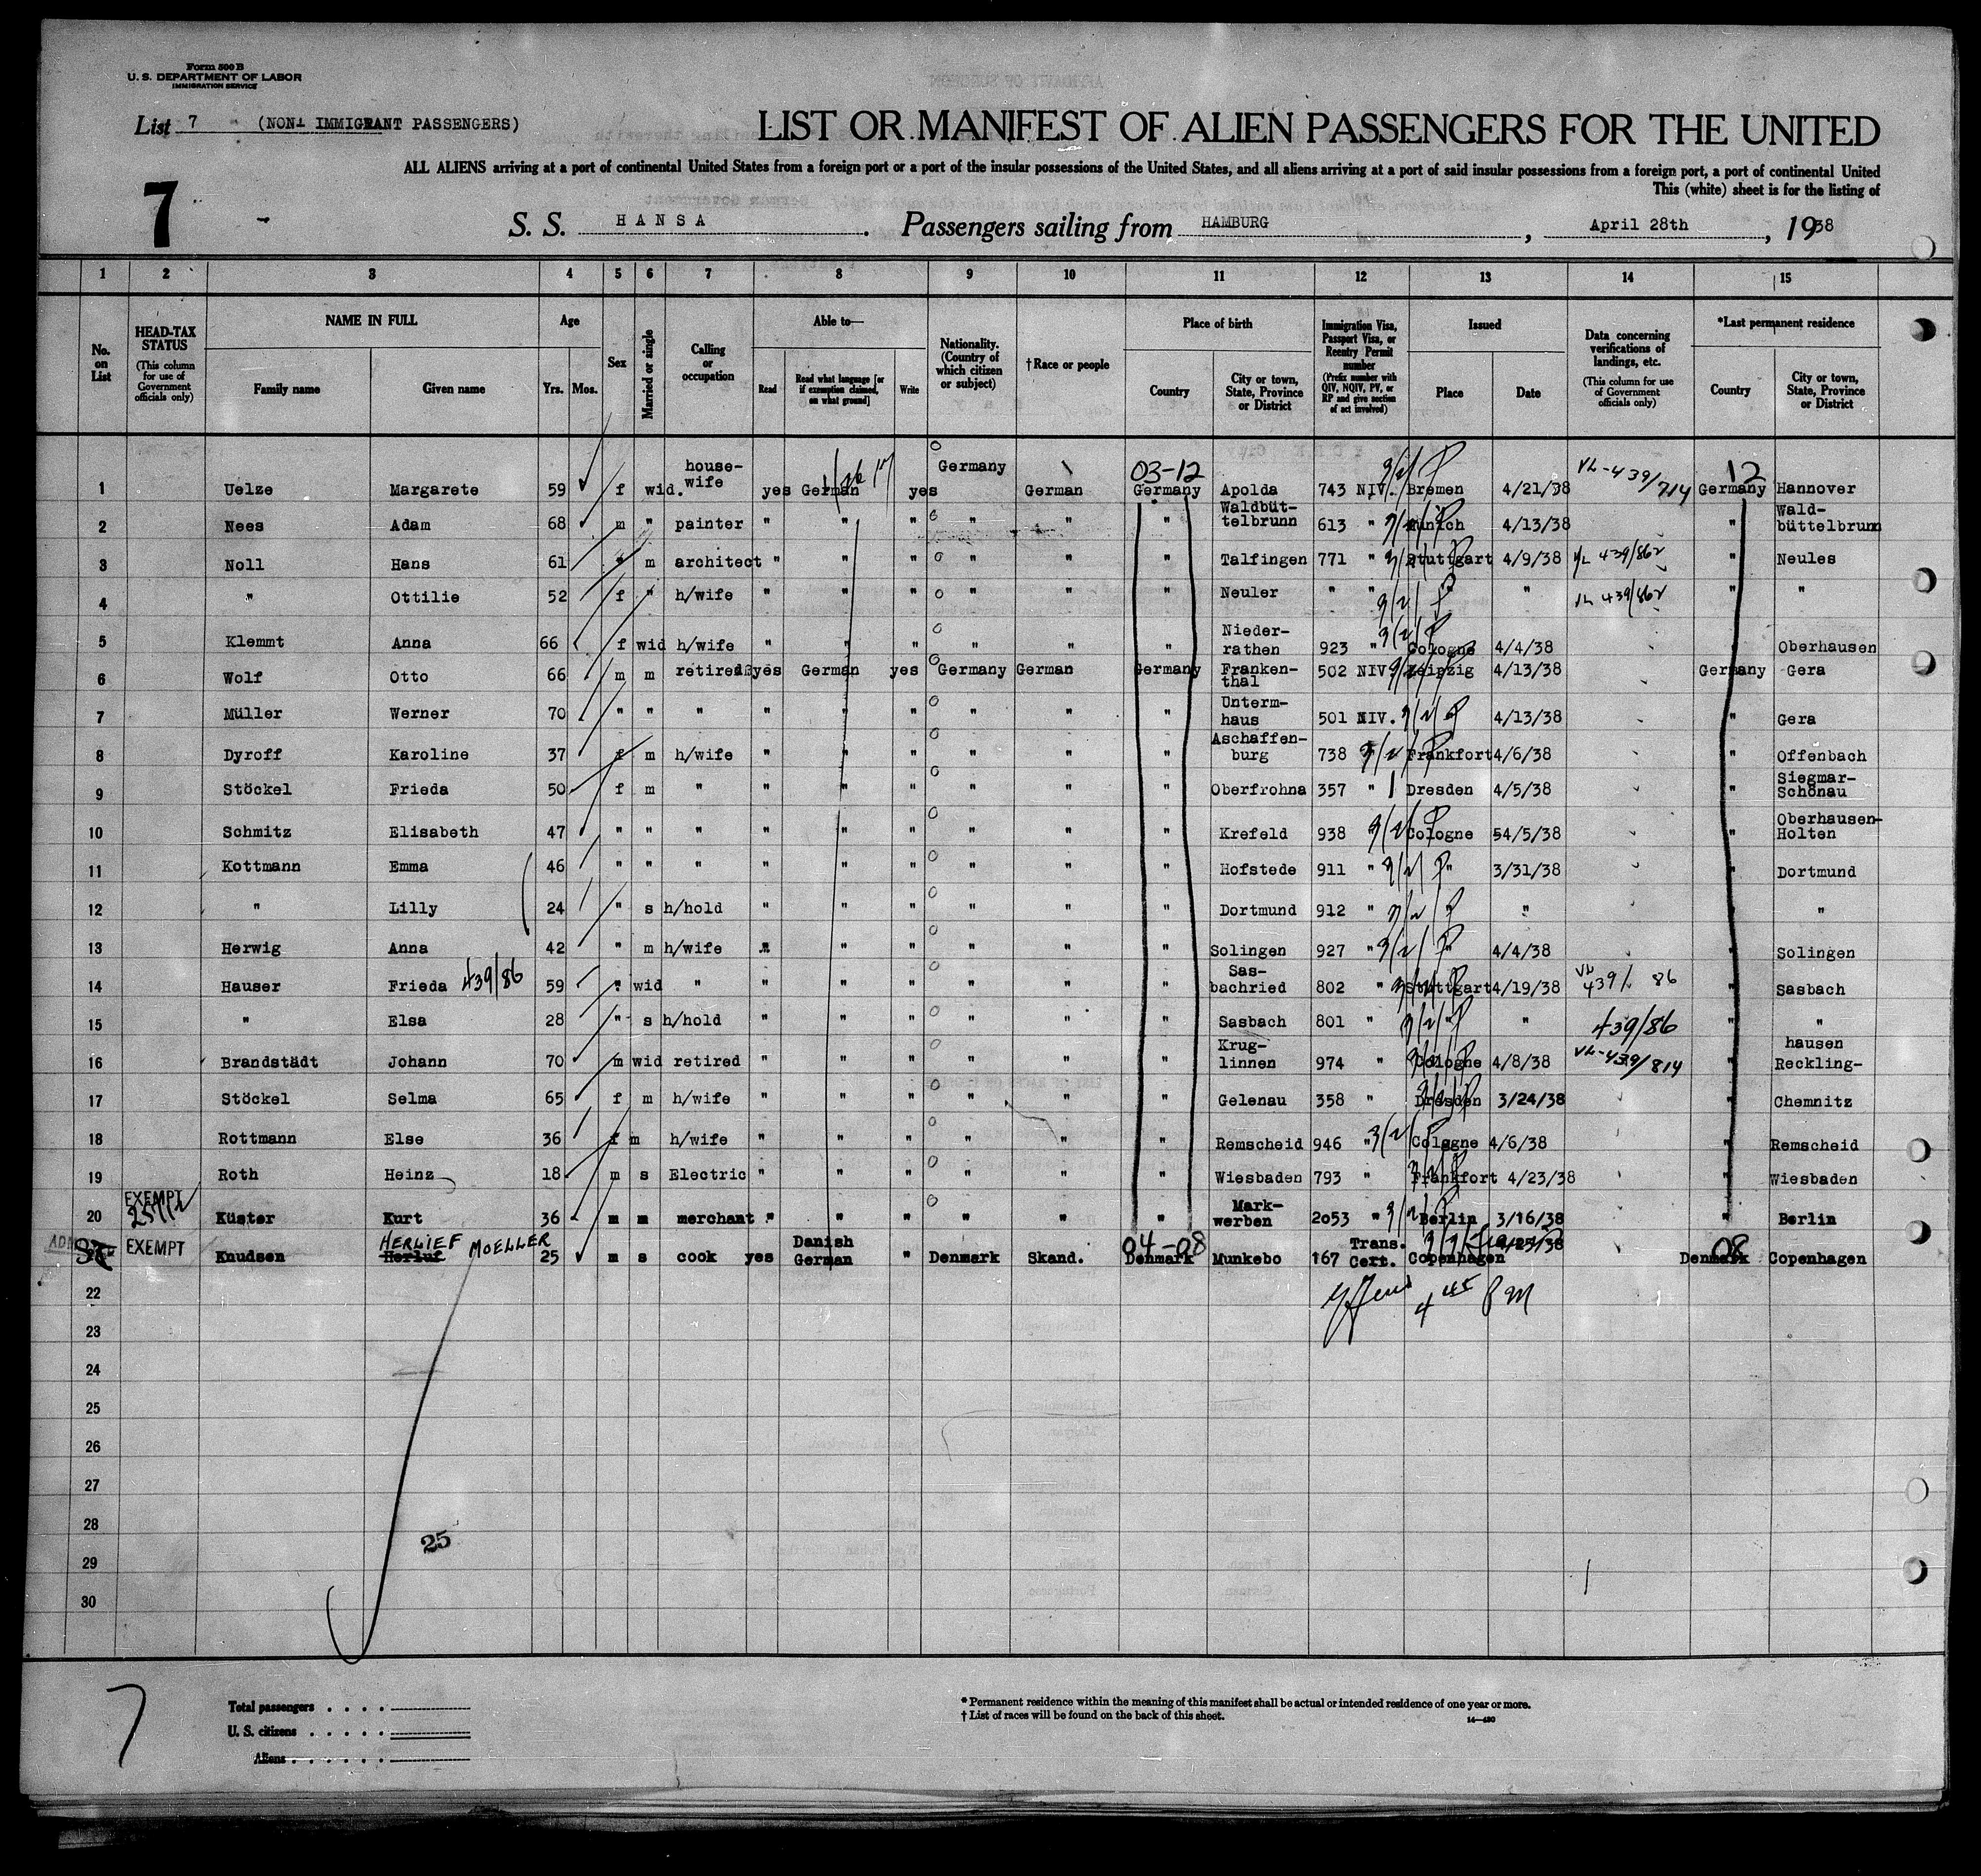 Form 500 B
U. S. DEPARTMENT OF LABOR
IMMIGRATION SERVICE
List 7 (NON- IMMIGRANT PASSENGERS)
LIST OR MANIFEST OF ALIEN PASSENGERS FOR THE UNITED
ALL ALIENS arriving at a port of continental United States from a foreign port or a port of the insular possessions of the United States, and all aliens arriving at a port of said insular possessions from a foreign port, a port of continental United
This (white) sheet is for the listing of
7
S. S. HANSA. Passengers sailing from HAMBURG, April 28th, 1938
1 2 3 4 5 6 7 8 9 10 11 12 13 14 15
No. on List
HEAD-TAX STATUS
(This column for use of Government officials only)
NAME IN FULL
Family name
Given name
Age
Yrs. Mos.
Sex
Married or single
Calling or occupation
Able to—
Read
Read what language [or if exemption claimed, on what ground]
Write
Nationality. (Country of which citizen or subject)
† Race or people
Place of birth
Country
City or town, State, Province or District
Immigration Visa, Passport Visa, or Reentry Permit number
(Prefix number with QIV, NQIV, PV, or RP and give section of act involved)
Issued
Place
Date
Data concerning verifications of landings, etc.
(This column for use of Government officials only)
*Last permanent residence
Country
City or town, State, Province or District
03-12 12
1 Uelze Margarete 59 f wid. house-wife yes German yes Germany German Germany Apolda 743 NIV. Bremen 4/21/38 VL-439/714 Germany Hannover
2 Nees Adam 68 m " painter " " " " " " Waldbüt-telbrunn 613 " Munich 4/13/38 " Wald-büttelbrunn
3 Noll Hans 61 " m architect " " " " " " Talfingen 771 " Stuttgart 4/9/38 VL 439/862 " Neules
4 " Ottilie 52 f " h/wife " " " " " " Neuler " " " VL 439/862 " "
5 Klemmt Anna 66 f wid h/wife " " " " " " Nieder-rathen 923 " Cologne 4/4/38 Oberhausen
6 Wolf Otto 66 m m retired yes German yes Germany German Germany Franken-thal 502 NIV Leipzig 4/13/38 Germany Gera
7 Müller Werner 70 " " " " " " " " " Unterm-haus 501 NIV. 4/13/38 " Gera
8 Dyroff Karoline 37 f m h/wife " " " " " " Aschaffen-burg 738 Frankfort 4/6/38 " Offenbach
9 Stöckel Frieda 50 f m " " " " " " " Oberfrohna 357 " Dresden 4/5/38 " Siegmar-Schönau
10 Schmitz Elisabeth 47 " " " " " " " " " Krefeld 938 Cologne 4/5/38 " Oberhausen-Holten
11 Kottmann Emma 46 " " " " " " " " " Hofstede 911 " " 3/31/38 " Dortmund
12 " Lilly 24 " s h/hold " " " " " " Dortmund 912 " " " " "
13 Herwig Anna 42 " m h/wife " " " " " " Solingen 927 " " 4/4/38 " Solingen
14 Hauser Frieda 439/86 59 " wid " " " " " " " Sas-bachried 802 " Stuttgart 4/19/38 VL 439/ 86 " Sasbach
15 " Elsa 28 " s h/hold " " " " " " Sasbach 801 " " " 439/86 " "
16 Brandstädt Johann 70 m wid retired " " " " " " Krug-linnen 974 " Cologne 4/8/38 VL-439/814 " hausen Reckling-
17 Stöckel Selma 65 f m h/wife " " " " " " Gelenau 358 " Dresden 3/24/38 " Chemnitz
18 Rottmann Else 36 f m h/wife " " " " " " Remscheid 946 " Cologne 4/6/38 " Remscheid
19 Roth Heinz 18 m s Electric " " " " " " Wiesbaden 793 " Frankfort 4/23/38 " Wiesbaden
20 EXEMPT Küster Kurt 36 m m merchant " " " " " " Mark-werben 2053 " Berlin 3/16/38 " Berlin
EXEMPT Knudsen Herluf HERLIEF MOELLER 25 m s cook yes Danish German " Denmark Skand. 04-08 Denmark Munkebo 167 Trans. Cert. Copenhagen 4/25/38 08 Denmark Copenhagen
22 4 45 PM
23
24
25
26
27
28
25
29
30
7
Total passengers
U. S. citizens
Aliens
* Permanent residence within the meaning of this manifest shall be actual or intended residence of one year or more.
† List of races will be found on the back of this sheet.
14—430